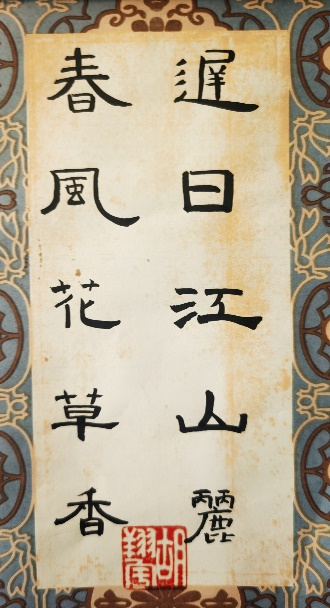 遲日江山麗
春風花草香